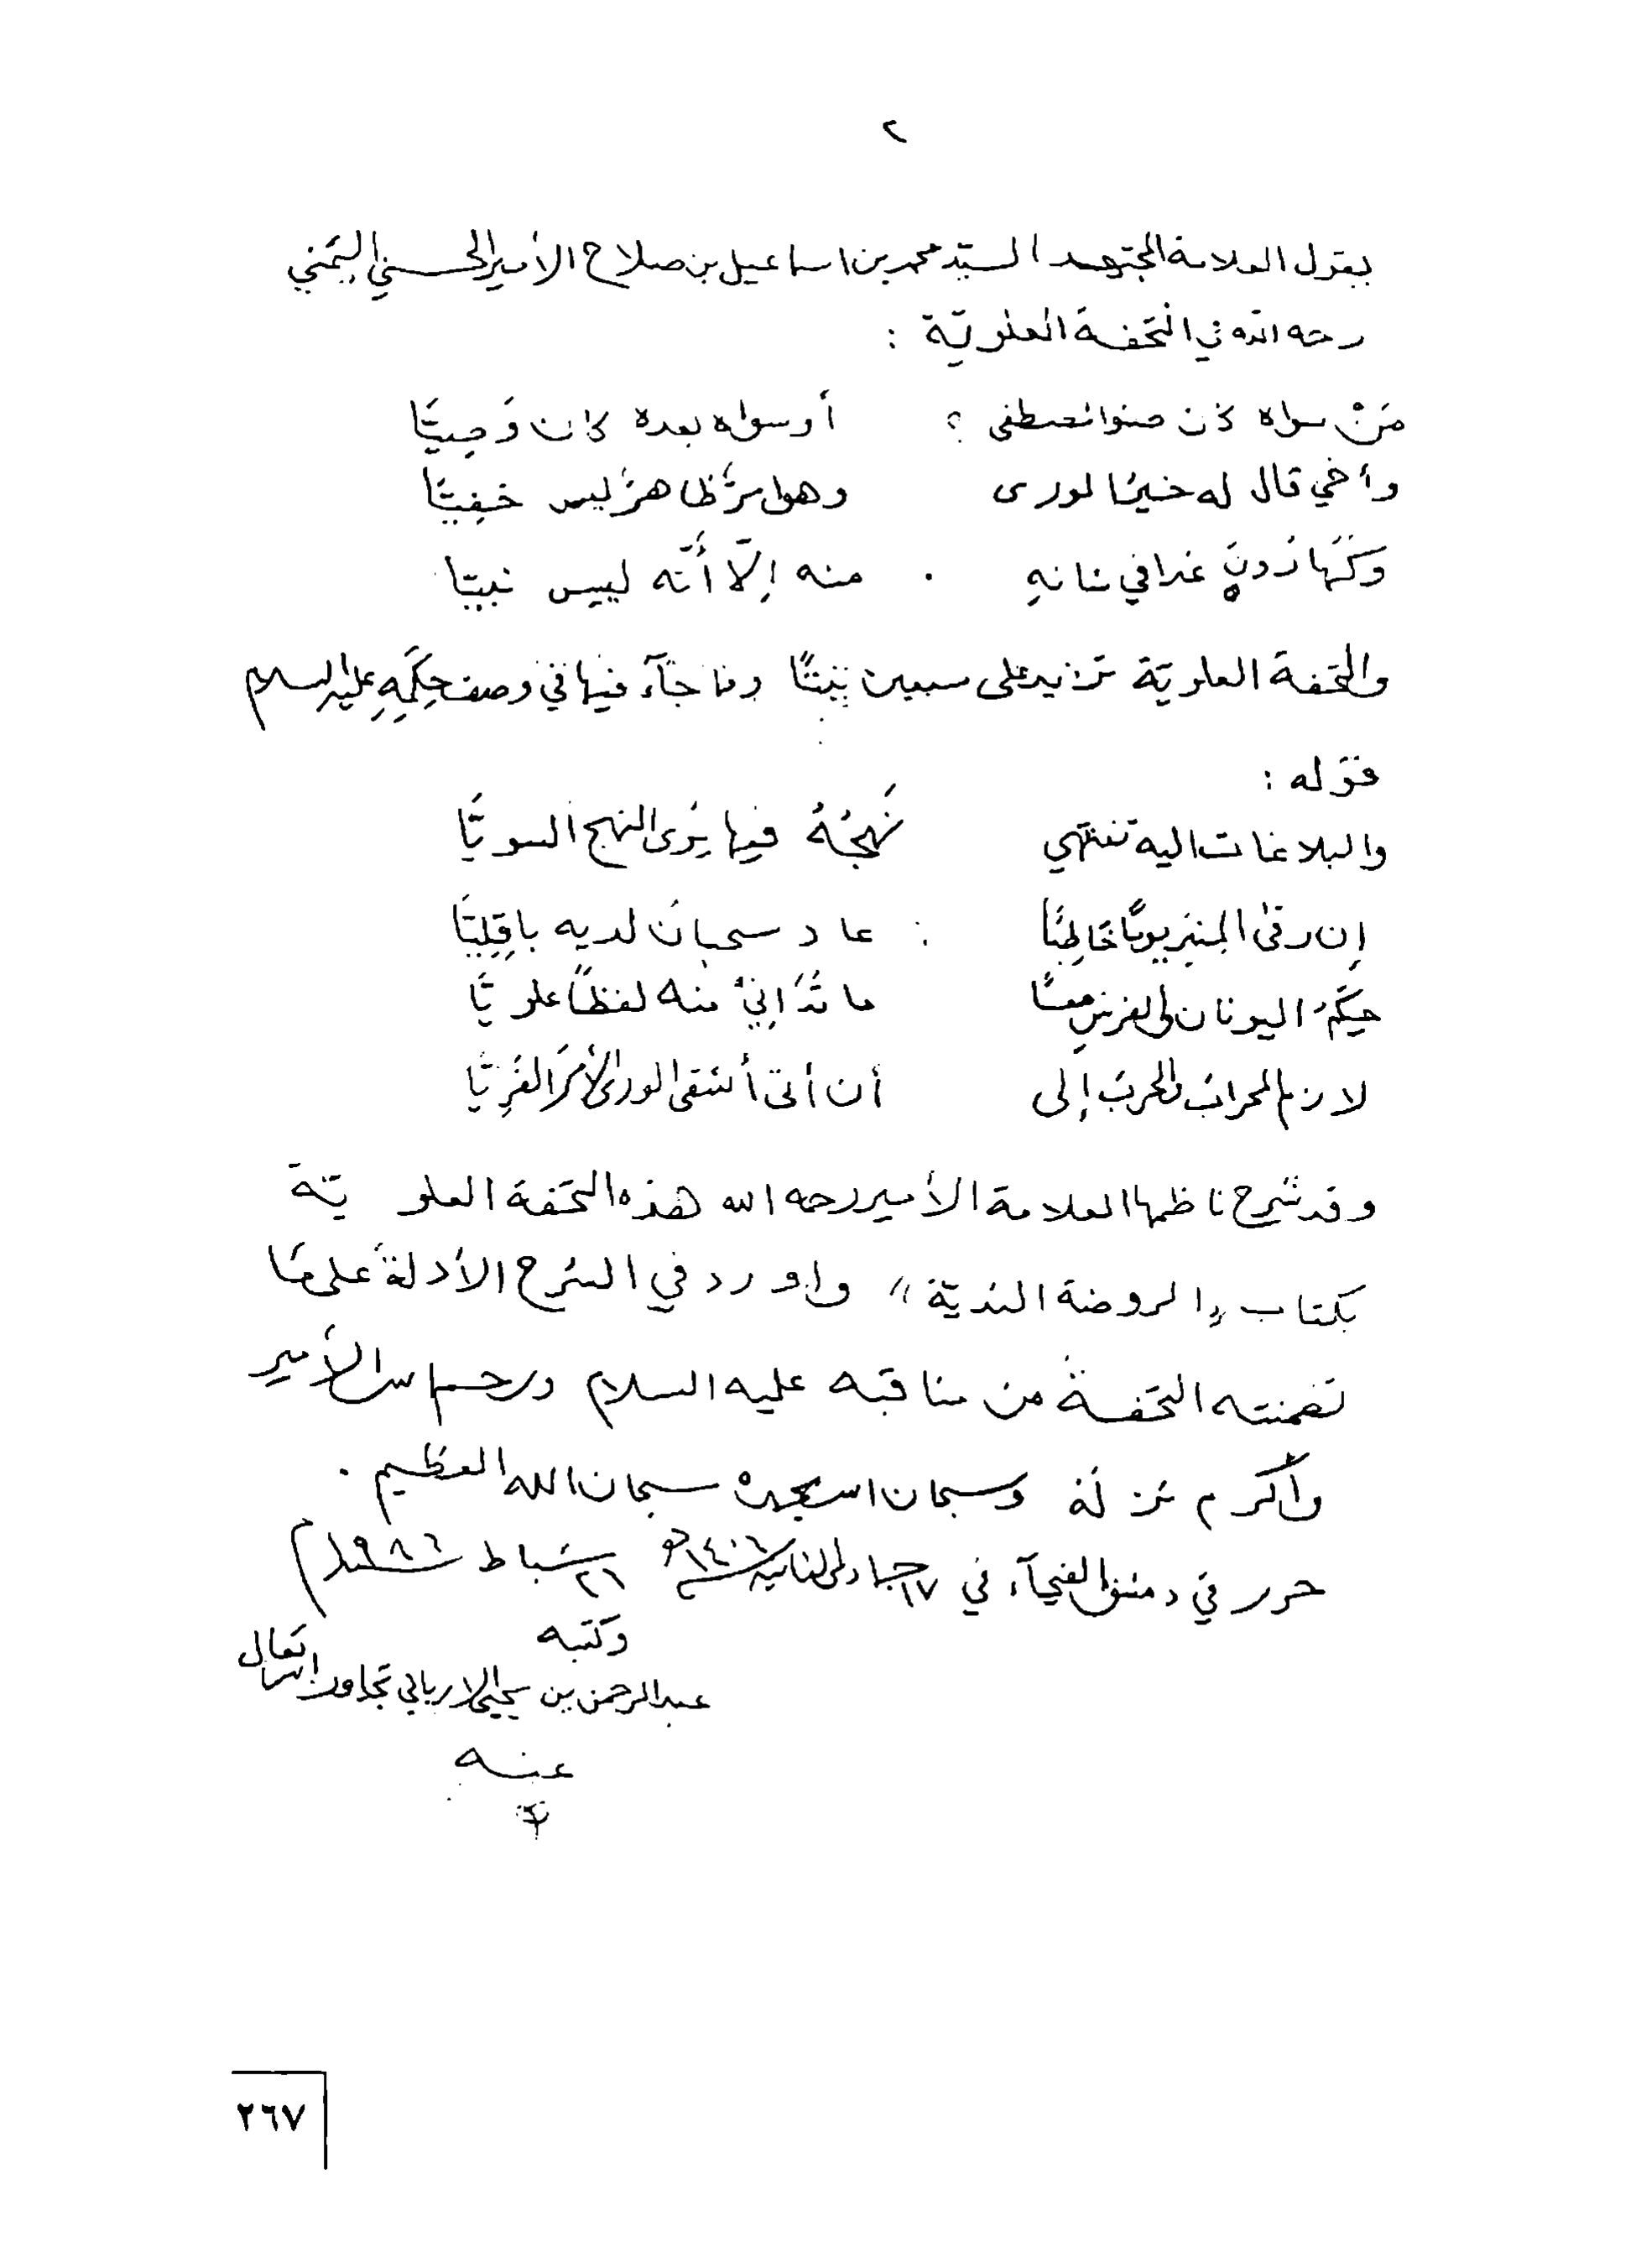 ٢
يقول العلامة المجتهد السيّد محمد بن اسماعيل بن صلاح الأمير الحسني اليمني
رحمه الله في التحفة العلويّة :
مَنْ سواه كان صنو المصطفى ؟ أو سواه بعده كان وَصِيَّا
وأخي قال له خيرُ الورى وهو أمرٌ ظاهرٌ ليس خفِيَّا
وكهارُونَ غدا في شانهِ منه إلّا أنّه ليس نبيّا
والتحفة العلويّة تزيد على سبعين بيتًا ومما جآء فيها في وصف حِكَمِهِ عليه السلام
قوله :
والبلاغات اليه تنتهي نَهجُهُ فيها يُرى النهج السويَّا
إن رقى المنبَر يومًا خاطبًا عاد سحبانُ لديه باقِلِيَّا
حِكَمُ اليونان والفرسِ معًا ما تُدَانِيْ منه لفظًا علويَّا
لازم المحرابَ والحربَ إلى أن أتى أشقى الورى الأمرَ الفَرِيَّا
وقد شرح ناظمها العلامة الأمير رحمه الله هذه التحفة العلويّة
بكتاب «الروضة النديّة» وأورد في الشرح الأدلةَ على ما
تضمنته التحفةُ من مناقبه عليه السلام ورحم الله الأمير
وأكرم نزله وسبحان الله وبحمده سبحان الله العظيم .
حرر في دمشق الفيحآء في ١٧ جمادى الثانية سنة ١٤٠٦ هـ ٢٦ شباط سنة ١٩٨٦ م
وكتبه
عبد الرحمن بن يحيى الارياني تجاوز الله تعالى
عنه
٢٦٧